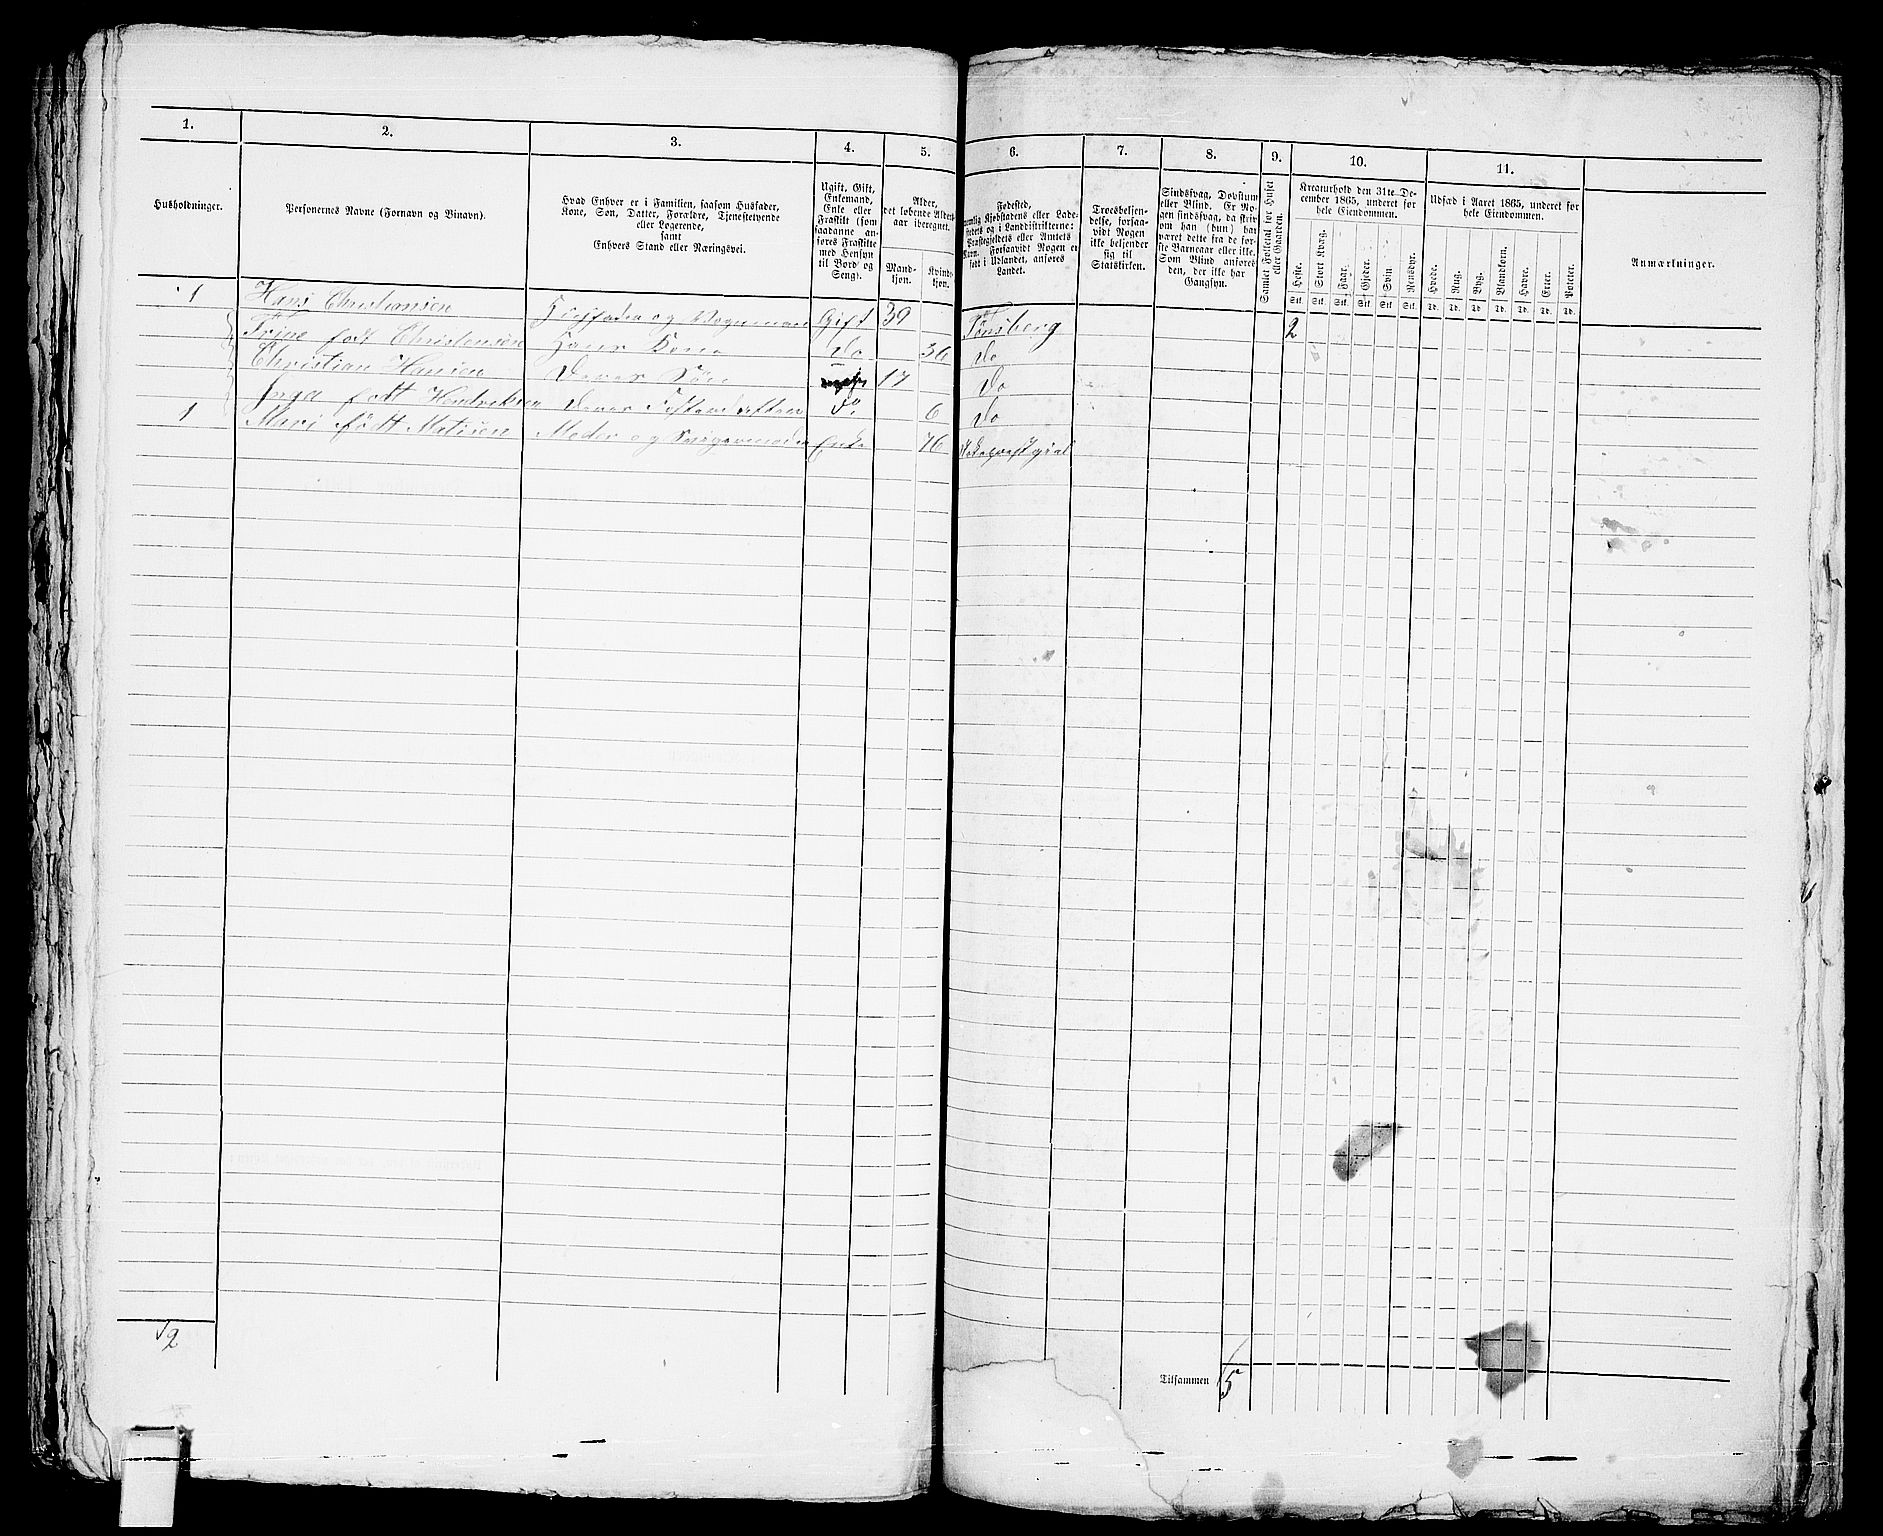 1. 2. 3. 4. 5. 6. 7. 8. 9. 10. 11.
Husholdninger.
Personernes Navne (Fornavn og Binavn).
Hvad Enhver er i Familien, saasom Husfader,
Kone, Søn, Datter, Forældre, Tjenestetyende
eller Logerende,
samt
Enhvers Stand eller Næringsvei.
Ugift, Gift,
Enkemand,
Enke eller
Fraskilt (som
saadanne an-
føres Fraskilte
med Hensyn
til Bord og
Seng).
Alder,
det løbende Alders-
aar iberegnet.
Mand-
kjøn.
Kvind-
kjøn.
Fødested,
nemlig Kjøbstadens eller Lade-
stedets og i Landdistrikterne:
Præstegjeldets eller Amtets
Navn. Forsaavidt Nogen er
født i Udlandet, anføres
Landet.
Troesbekjen-
delse, forsaa-
vidt Nogen
ikke bekjender
sig til
Statskirken.
Sindssvag, Døvstum
eller Blind. Er No-
gen sindssvag, da skriv
om han (hun) har
været dette fra de før-
ste Barneaar eller ikke.
Som Blind anføres
den, der ikke har
Gangsyn.
Samlet Folketal for Huset
eller Gaarden.
Kreaturhold den 31te De-
cember 1865, underet for
hele Eiendommen.
Heste. Stort Kvæg. Faar. Gjeder. Svin Rensdyr.
Stk. Stk. Stk. Stk. Stk. Stk.
Udsæd i Aaret 1865, underet for
hele Eiendommen.
Hvede. Rug. Byg. Blandkorn. Havre. Erter. Poteter.
Td. Td. Td Td. Td. Td. Td.
Anmærkninger.
1 Hans Christiansen Husfader og Vognman Gift 39 Tønsberg 2
Trine født Christensen Hans Kone do 36 do
Christian Hansen Deres Søn 17 do
Inga født Hendriksen Deres Fosterdatter do 6 do
1 Mari født Matisen Moder og Svigermoder Enke 76
2
Tilsammen 5